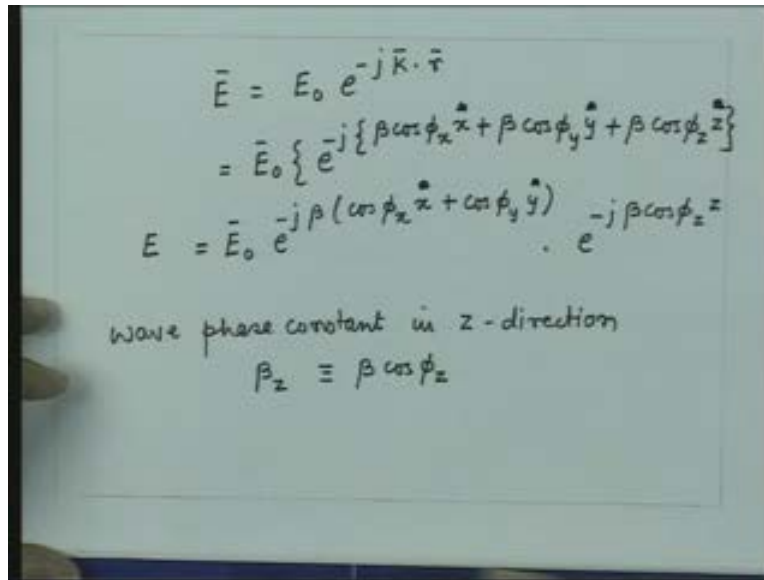 Ē = E₀ e^{-j k̄ · r̄}
= Ē₀ { e^{-j{β cos φₓ x + β cos φ_y y + β cos φ_z z}}
E = Ē₀ e^{-j β (cos φₓ x + cos φ_y y)} . e^{-j β cos φ_z z}
wave phase constant in z-direction
β_z ≡ β cos φ_z